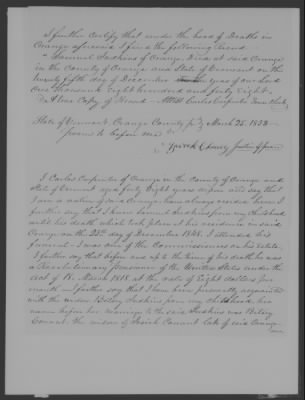 I further Certify that under the head of Deaths in
Orange aforesaid I find the following Record
"Samuel Judkins of Orange Died at said Orange
in the County of Orange and State of Vermont on the
twenty fifth day of December year of our Lord
one thousand Eight hundred and forty Eight.
A true Copy of Record — Attest Carlos Carpenter Town Clerk
State of Vermont Orange County ss March 25. 1853
Sworn to before me
Justice of Peace
I Carlos Carpenter of Orange in the County of Orange and
State of Vermont aged forty Eight years depose and say that
I am a native of said Orange have always resided here. I
further say that I knew Samuel Judkins from my Childhood
until his death which took place at his residence in said
Orange on the 25th day of December 1848. I attended his
funeral — I was one of the Commissioners on his estate.
I further say that before and up to the time of his death he was
a Revolutionary pensioner of the United States under the
act of 18. March 1818 at the rate of Eight dollars per
month — further say that I have been personally acquainted
with the widow Betsey Judkins from my childhood, her
name before her marriage to the said Judkins was Betsey
Conant. The widow of Josiah Conant late of said Orange